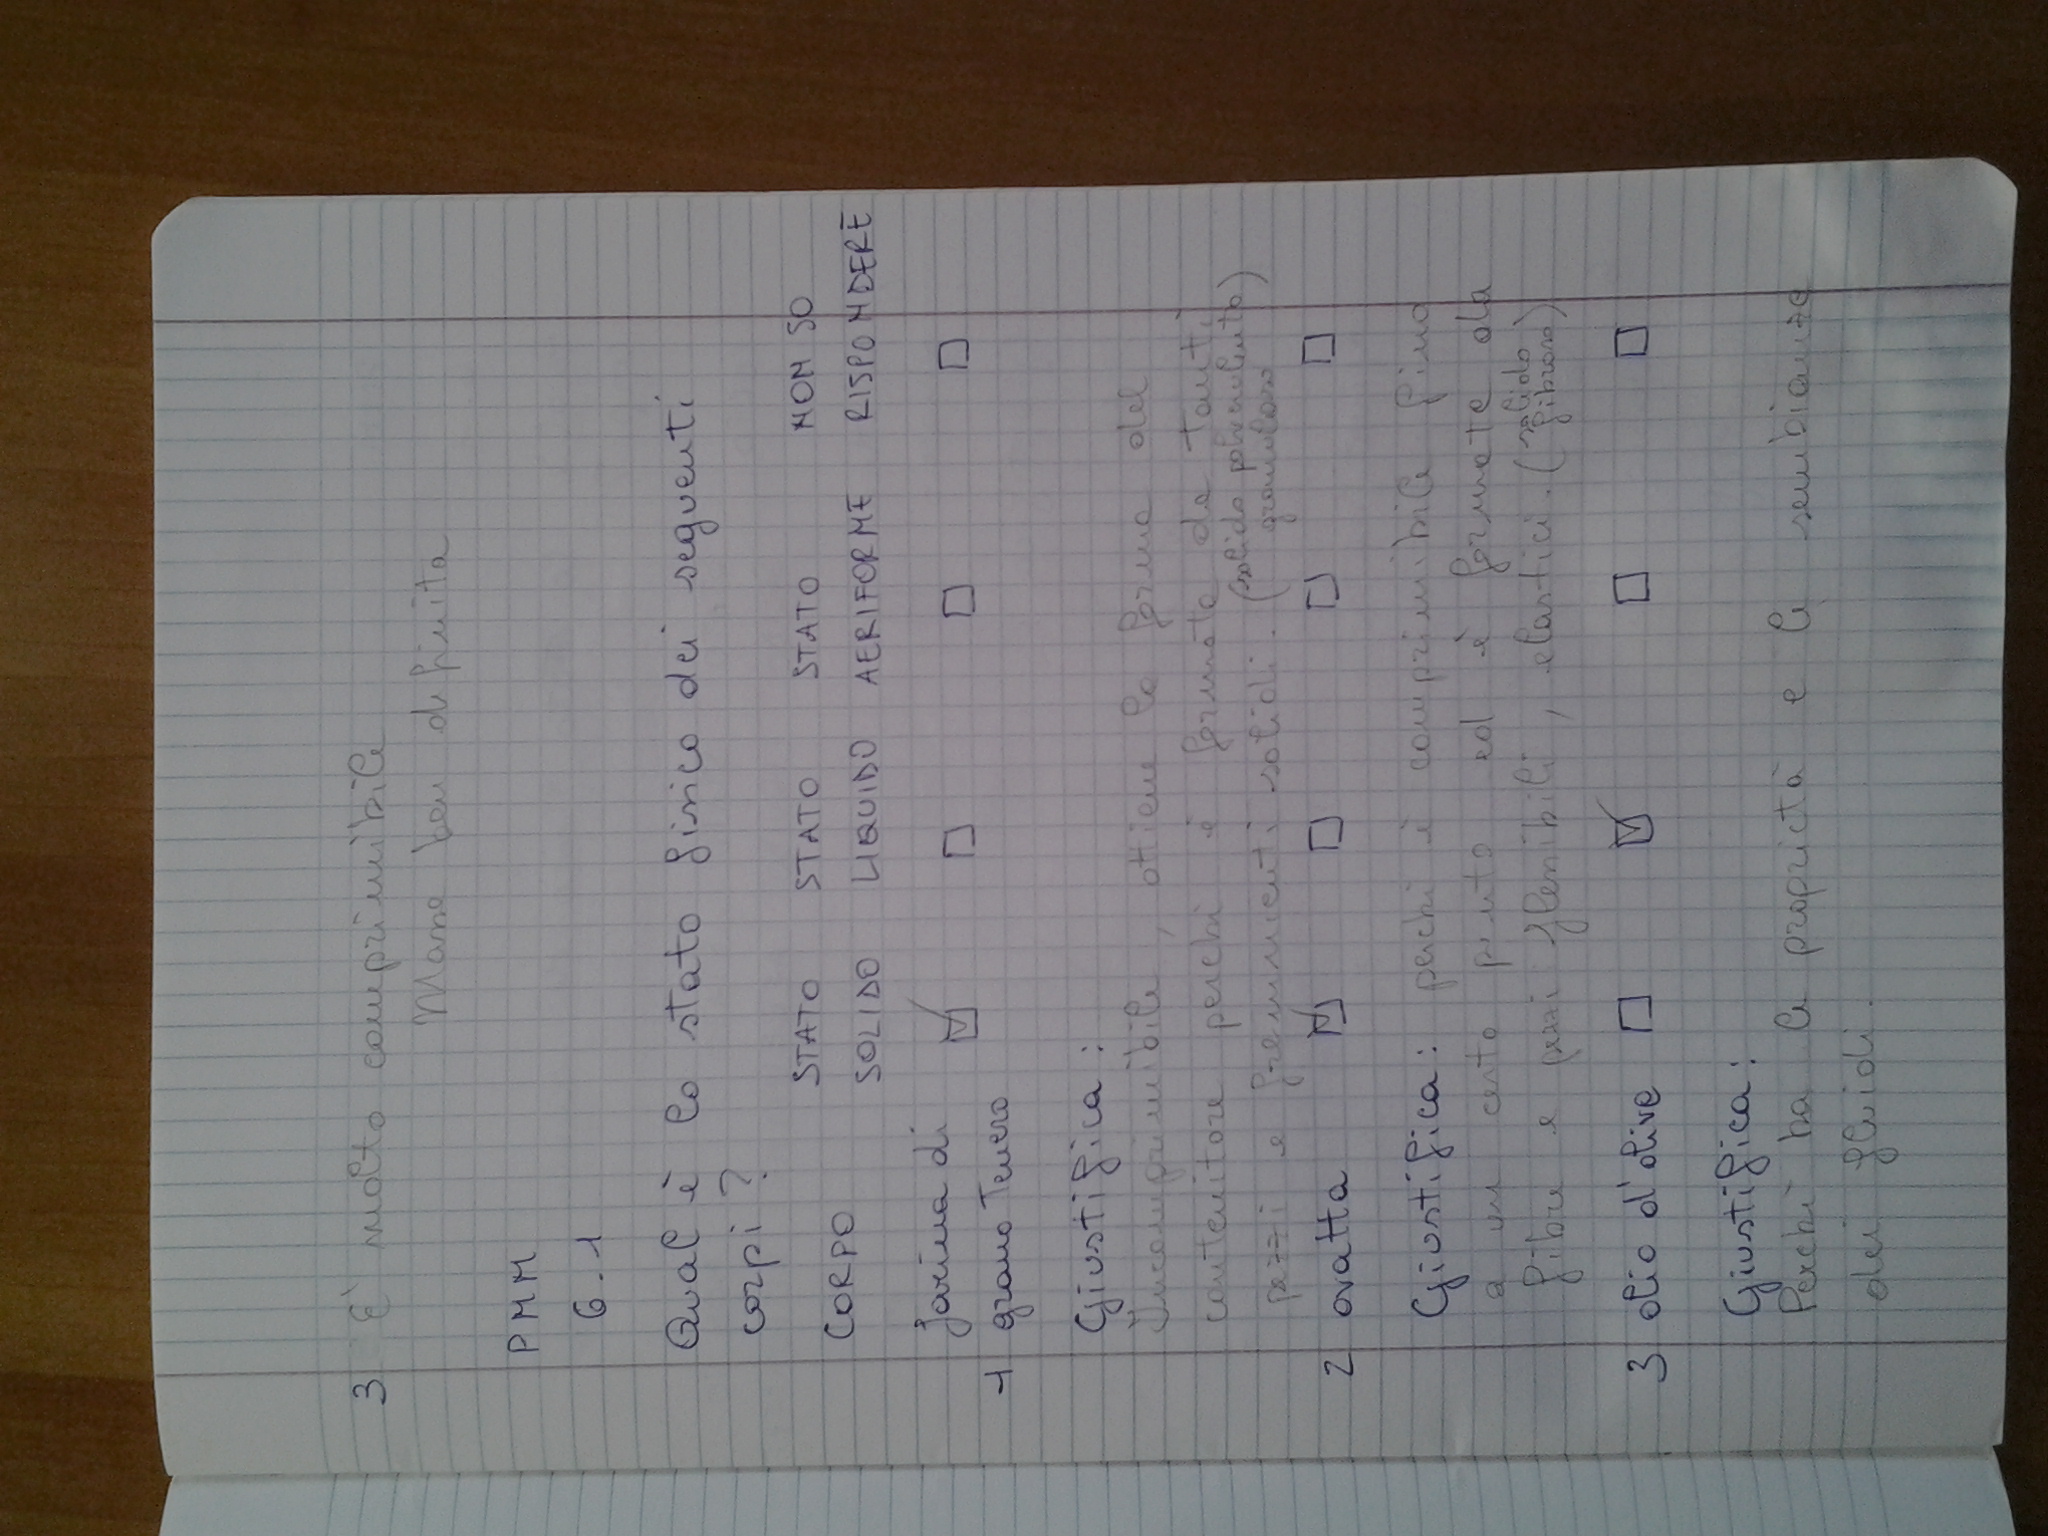 3 E' molto comprimibile
Massa ben definita
PMM
6.1
Qual è lo stato fisico dei seguenti
corpi?
CORPO STATO SOLIDO STATO LIQUIDO STATO AERIFORME NON SO RISPONDERE
1 farina di
grano tenero
Giustifica:
incomprimibile, ottiene la forma del
contenitore perchè è formata da tanti
pezzi e frammenti solidi. (solido polverulento)
granuloso
2 ovatta
Giustifica: perchè è comprimibile fino
a un certo punto ed è formata da
fibre e pezzi flessibili, elastici. (solido
fibroso)
3 olio d'olive
Giustifica:
Perchè ha le proprietà e le sembianze
dei fluidi.